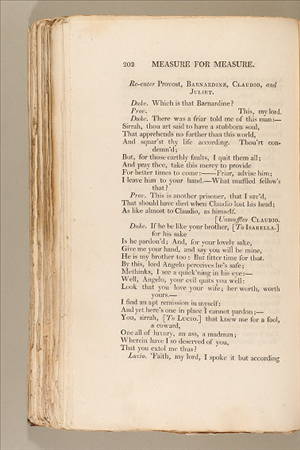 202 MEASURE FOR MEASURE.
Re-enter Provost, BARNARDINE, CLAUDIO, and
JULIET.
Duke. Which is that Barnardine?
Prov. This, my lord.
Duke. There was a friar told me of this man:—
Sirrah, thou art said to have a stubborn soul,
That apprehends no further than this world,
And squar'st thy life according. Thou'rt con-
demn'd;
But, for those earthly faults, I quit them all;
And pray thee, take this mercy to provide
For better times to come:——Friar, advise him;
I leave him to your hand.—What muffled fellow's
that?
Prov. This is another prisoner, that I sav'd,
That should have died when Claudio lost his head;
As like almost to Claudio, as himself.
[Unmuffles CLAUDIO.
Duke. If he be like your brother, [To ISABELLA.]
for his sake
Is he pardon'd; And, for your lovely sake,
Give me your hand, and say you will be mine,
He is my brother too: But fitter time for that.
By this, lord Angelo perceives he's safe;
Methinks, I see a quick'ning in his eye:—
Well, Angelo, your evil quits you well:
Look that you love your wife; her worth, worth
yours.—
I find an apt remission in myself:
And yet here's one in place I cannot pardon;—
You, sirrah, [To LUCIO.] that knew me for a fool,
a coward,
One all of luxury, an ass, a madman;
Wherein have I so deserved of you,
That you extol me thus?
Lucio. 'Faith, my lord, I spoke it but according